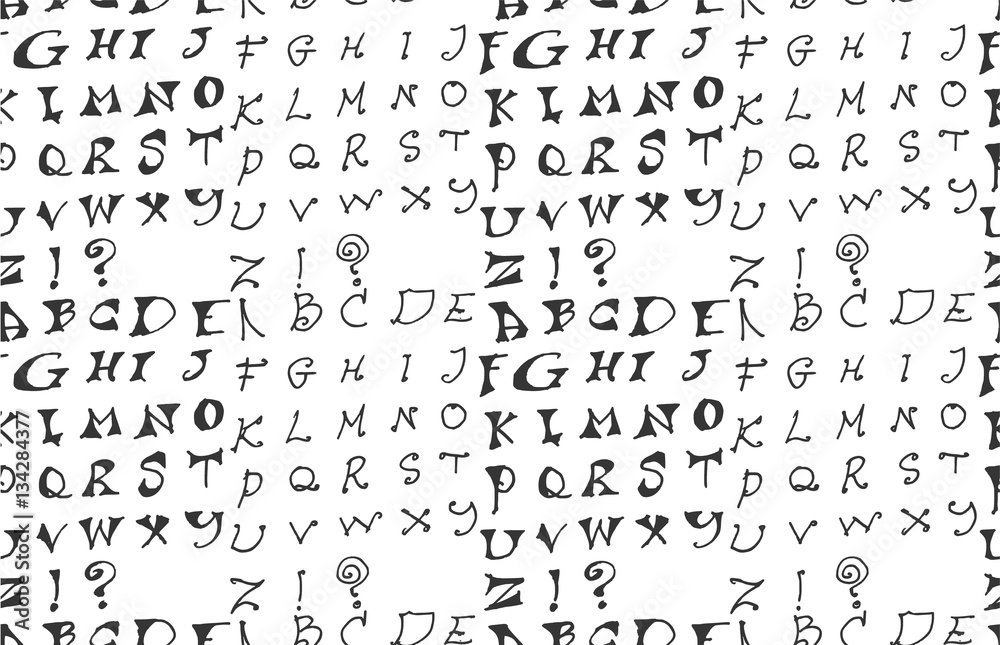 A B C D E A B C D E A B C D E A B C D E
F G H I J F G H I J F G H I J F G H I J F
K L M N O K L M N O K L M N O K L M N O K
P Q R S T P Q R S T P Q R S T P Q R S T P
U V W X Y U V W X Y U V W X Y U V W X Y U
Z ! ? Z ! ? Z ! ? Z ! ? Z
A B C D E A B C D E A B C D E A B C D E A
F G H I J F G H I J F G H I J F G H I J F
K L M N O K L M N O K L M N O K L M N O K
P Q R S T P Q R S T P Q R S T P Q R S T P
U V W X Y U V W X Y U V W X Y U V W X Y U
Z ! ? Z ! ? Z ! ? Z ! ? Z
A B C D E A B C D E A B C D E A B C D E A
Adobe Stock | #134284377